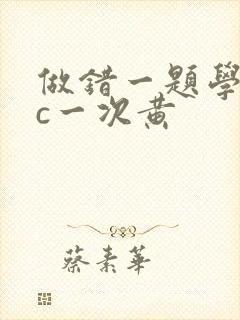 做錯一題學
c一次黄
蔡素華